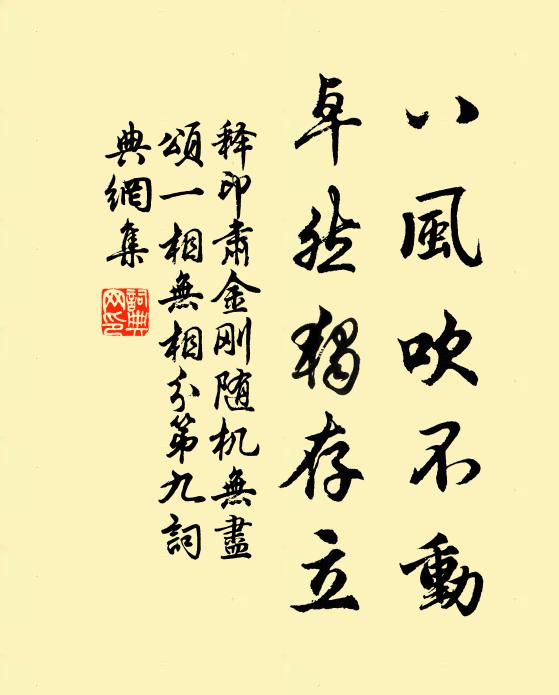 八風吹不動
卓然獨存立
释印肃金刚随机無盡
頌一相無相分第九詞
典網集
詞典
网印